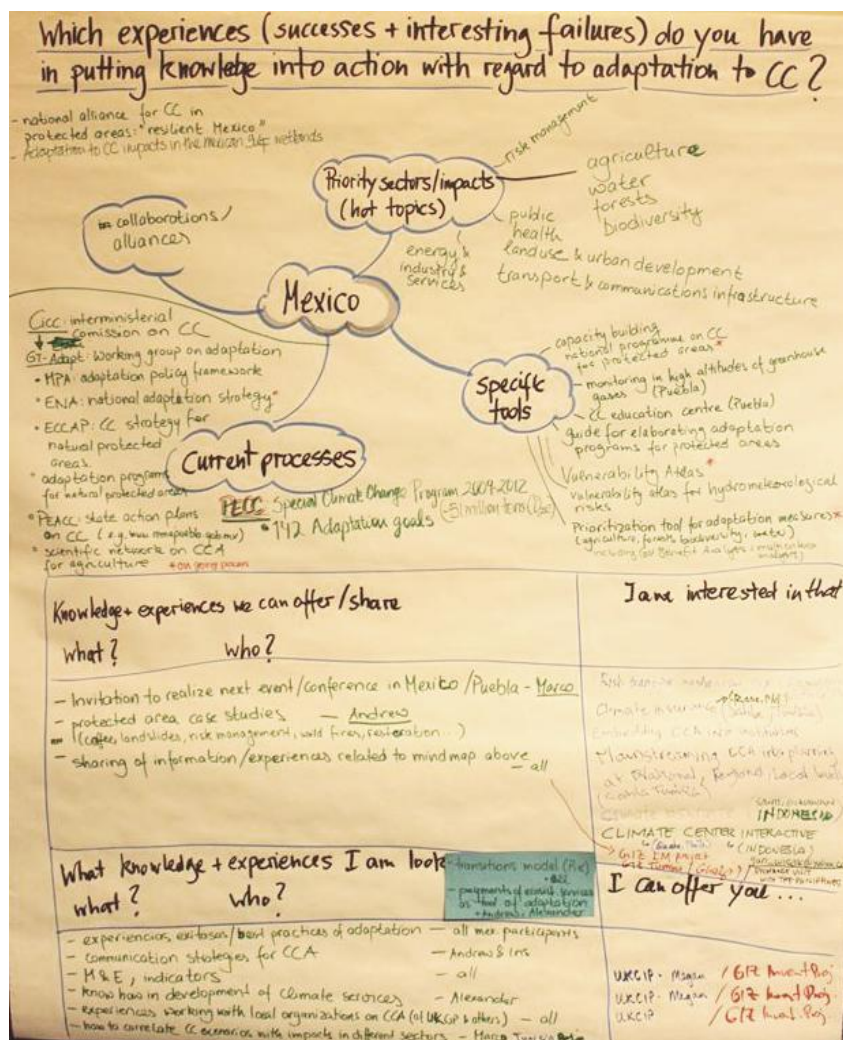 Which experiences (successes + interesting failures) do you have
in putting knowledge into action with regard to adaptation to CC?
- national alliance for CC in
protected areas: "resilient Mexico"
- Adaptation to CC impacts in the mexican gulf wetlands
collaborations/
alliances
Priority sectors/impacts
(hot topics)
risk management
agriculture
water
forests
biodiversity
public
health
landuse & urban development
transport & communications infrastructure
energy &
industry &
services
Mexico
CICC: interministerial
comission on CC
GT-Adapt: Working group on adaptation
• MPA: adaptation policy framework
• ENA: national adaptation strategy*
• ECCAP: CC strategy for
natural protected
areas.
* adaptation programs
for natural protected areas
* PEACC: state action plans
on CC (e.g.
* scientific network on CCA
for agriculture
Current processes
PECC: Special Climate Change Program 2009-2012
• 142 Adaptation goals
Specific
tools
capacity building
national programme on CC
for protected areas*
monitoring in high altitudes of greenhouse
gases (Puebla)
CC education centre (Puebla)
guide for elaborating adaptation
programs for protected areas
Vulnerability Atlas*
vulnerability atlas for hydrometeorological
risks
Prioritization tool for adaptation measures*
(agriculture, forests, biodiversity, water)
Knowledge + experiences we can offer/share
what? who?
- Invitation to realize next event/conference in Mexico/Puebla - Marco
- protected area case studies - Andrew
(coffee, landslides, risk management, wild fires, restoration...)
- sharing of information/experiences related to mindmap above
- all
I am interested in that
Mainstreaming CCA into planning
at National, Regional, Local level
INDONESIA
CLIMATE CENTER INTERACTIVE
(INDONESIA)
What knowledge + experiences I am look
what? who?
- transitions model
- payments of ecosist. services
as tool of adaptation
Andrew, Alexander
- experiencias exitosas/best practices of adaptation - all mex. participants
- communication strategies for CCA - Andrew & Iris
- M&E, indicators - all
- know how in development of climate services - Alexander
- experiences working with local organizations on CCA (of UKCIP & others) - all
- how to correlate CC scenarios with impacts in different sectors - Marco
I can offer you...
UKCIP - Megan / GIZ Invent Proj.
UKCIP - Megan / GIZ Invent Proj.
UKCIP / GIZ Invent. Proj.